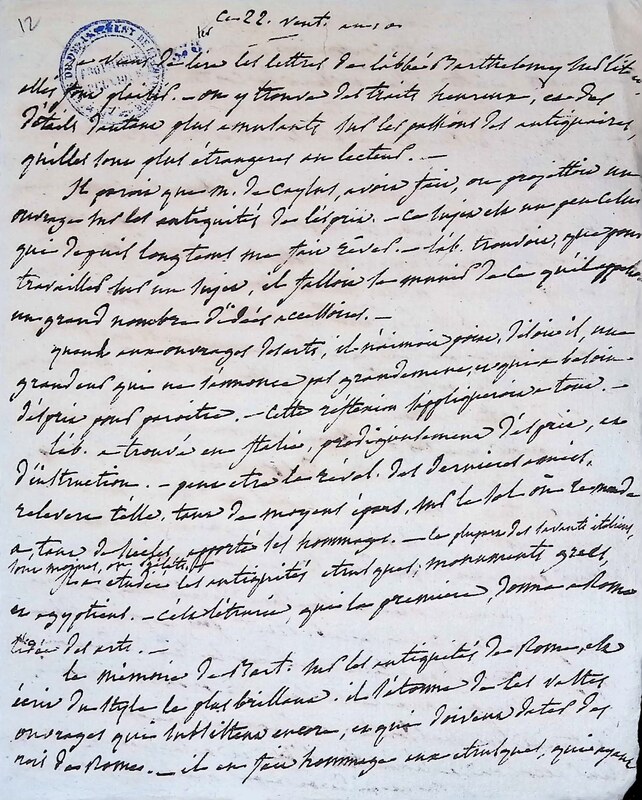 12
Ce 22. vent. an 10
je viens de lire les lettres de l'abbé Barthelemy sur l'it-
elles sont plaisir. - on y trouve des traits heureux, et des
détails d'autant plus amusants sur les passions des antiquaires,
qu'elles sont plus étrangeres au lecteur. -
Il paroit que m. de Caylus, avoit fait, ou projettoit un
ouvrage sur les antiquités de l'esprit. - Ce sujet est un peu celui
qui depuis longtems me fait rêver. - l'ab. trouvoit, que pour
travailler sur un sujet, il falloit se munir de ce qu'il appelle
un grand nombre d'idées accessoires. -
quand aux ouvrages des arts, il n'aimoit point, disoit il, une
grandeur qui ne s'annonce pas grandement, et qui a besoin
d'esprit pour paroitre. - Cette réflexion s'appliqueroit a tout. -
l'ab. a trouvé en Italie, prodigieusement d'esprit, et
d'instruction. - peut etre le réveil des dernieres années,
relevera t'elle, tant de moyens épars, sur le sol où le monde
a, tant de siecles, apporté ses hommages. - la plupart des savants italiens,
sont moines, ou prélats
Il a etudié les antiquités etrusques, monuments grecs,
et egyptiens. - C'est l'étrurie, qui la premiere, donna a Rome
l'idée des arts. -
le mémoire de Bart. sur les antiquités de Rome, est
écrit du style le plus brillant. il s'étonne de ces vastes
ouvrages qui subsistent encore, et qui doivent dater des
rois de Rome. - il en fait hommage aux etrusques, qui ayant